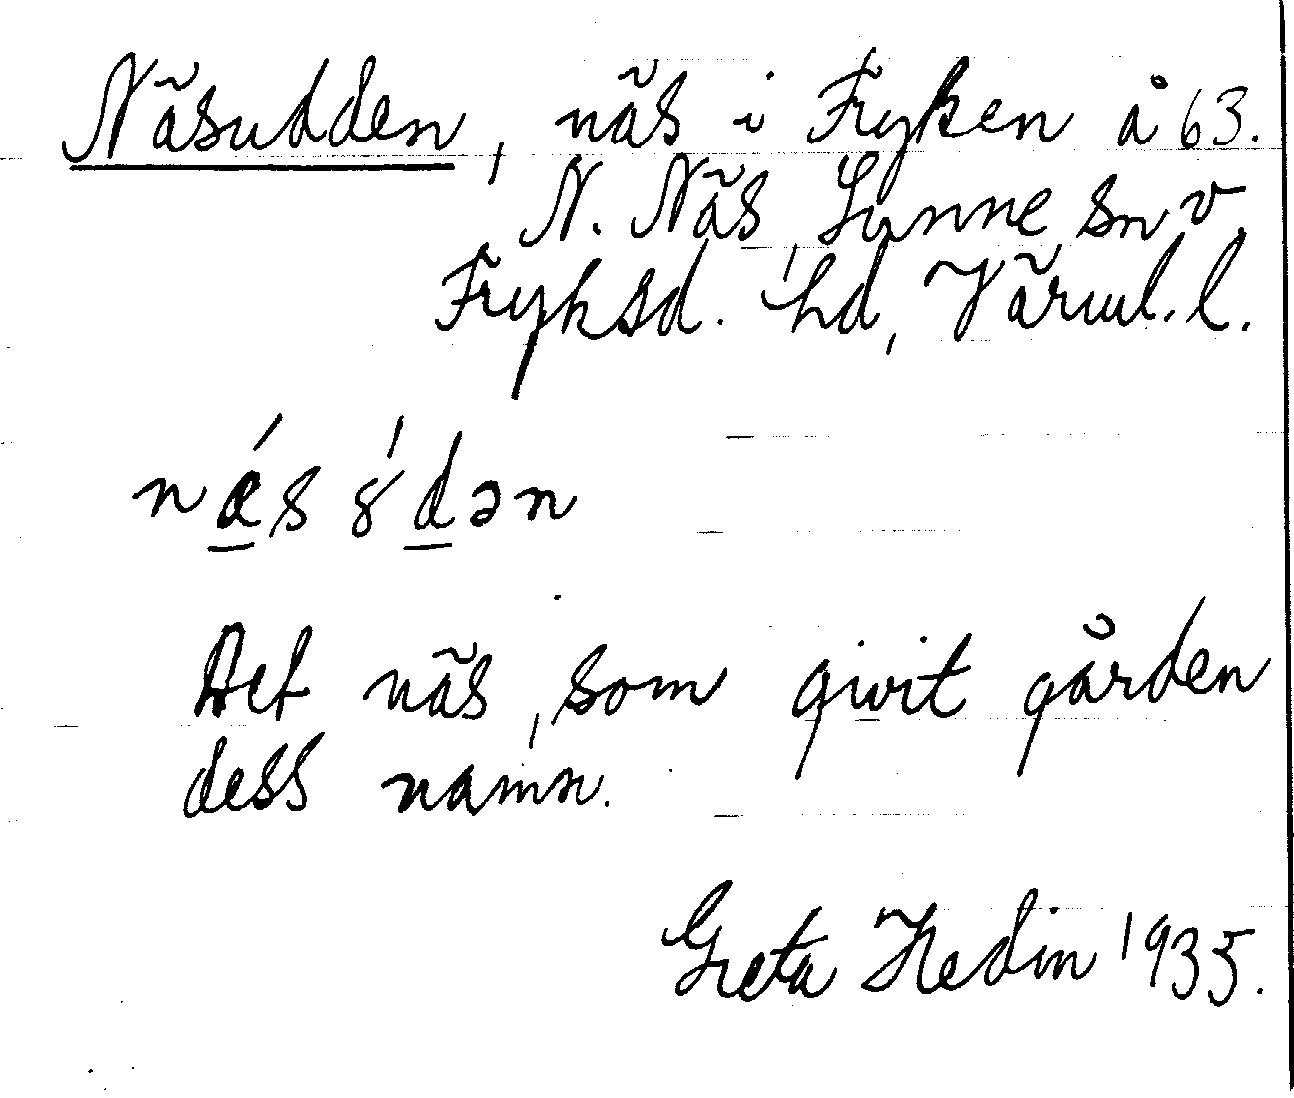 Näsudden, näs i Fryken å 63.
N. Näs, Sunne sn v.
Fryksd. hd, Värml. l.
nǽ̲s 8́d̲ən
Det näs, som givit gården
dess namn.
Greta Hedin 1935.